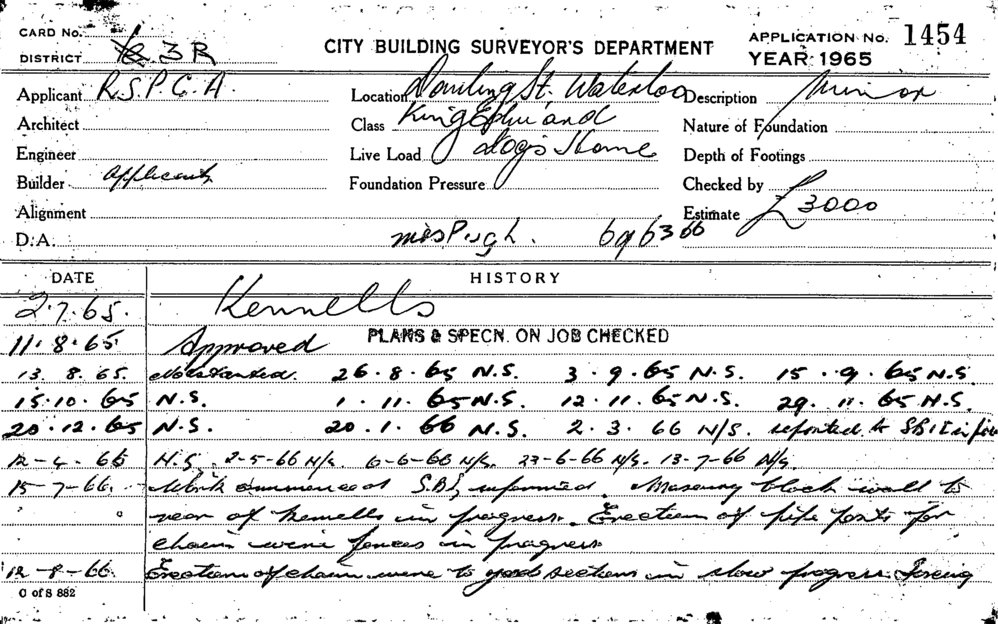 CARD No.
DISTRICT 3R
CITY BUILDING SURVEYOR'S DEPARTMENT
APPLICATION No. 1454
YEAR 1965
Applicant R.S.P.C.A.
Location Dowling St. Waterloo
Description Minor
Architect
Class King Edw'and
Nature of Foundation
Engineer
Live Load Dogs Home
Depth of Footings
Builder Applicants
Foundation Pressure
Checked by
Alignment
Estimate £3000
D.A.
Miss Pugh. 696366
DATE HISTORY
2.7.65. Kennells
11.8.65 Approved PLANS & SPECN. ON JOB CHECKED
13.8.65. Not started. 26.8.65 N.S. 3.9.65 N.S. 15.9.65 N.S
15.10.65 N.S. 1.11.65 N.S. 12.11.65 N.S. 29.11.65 N.S.
20.12.65 N.S. 20.1.66 N.S. 2.3.66 N/S. reported to
12-4-66 N.S. 2-5-66 N/S. 6-6-66 N/S. 23-6-66 N/S. 13-7-66 N/S
15-7-66. Work commenced S.B.I. informed. Masonry block wall to
rear of kennells in progress. Erection of pipe posts for
chain wire fences in progress
12-8-66. Erection of chain wire to yard sections in slow progress.
C of S 882